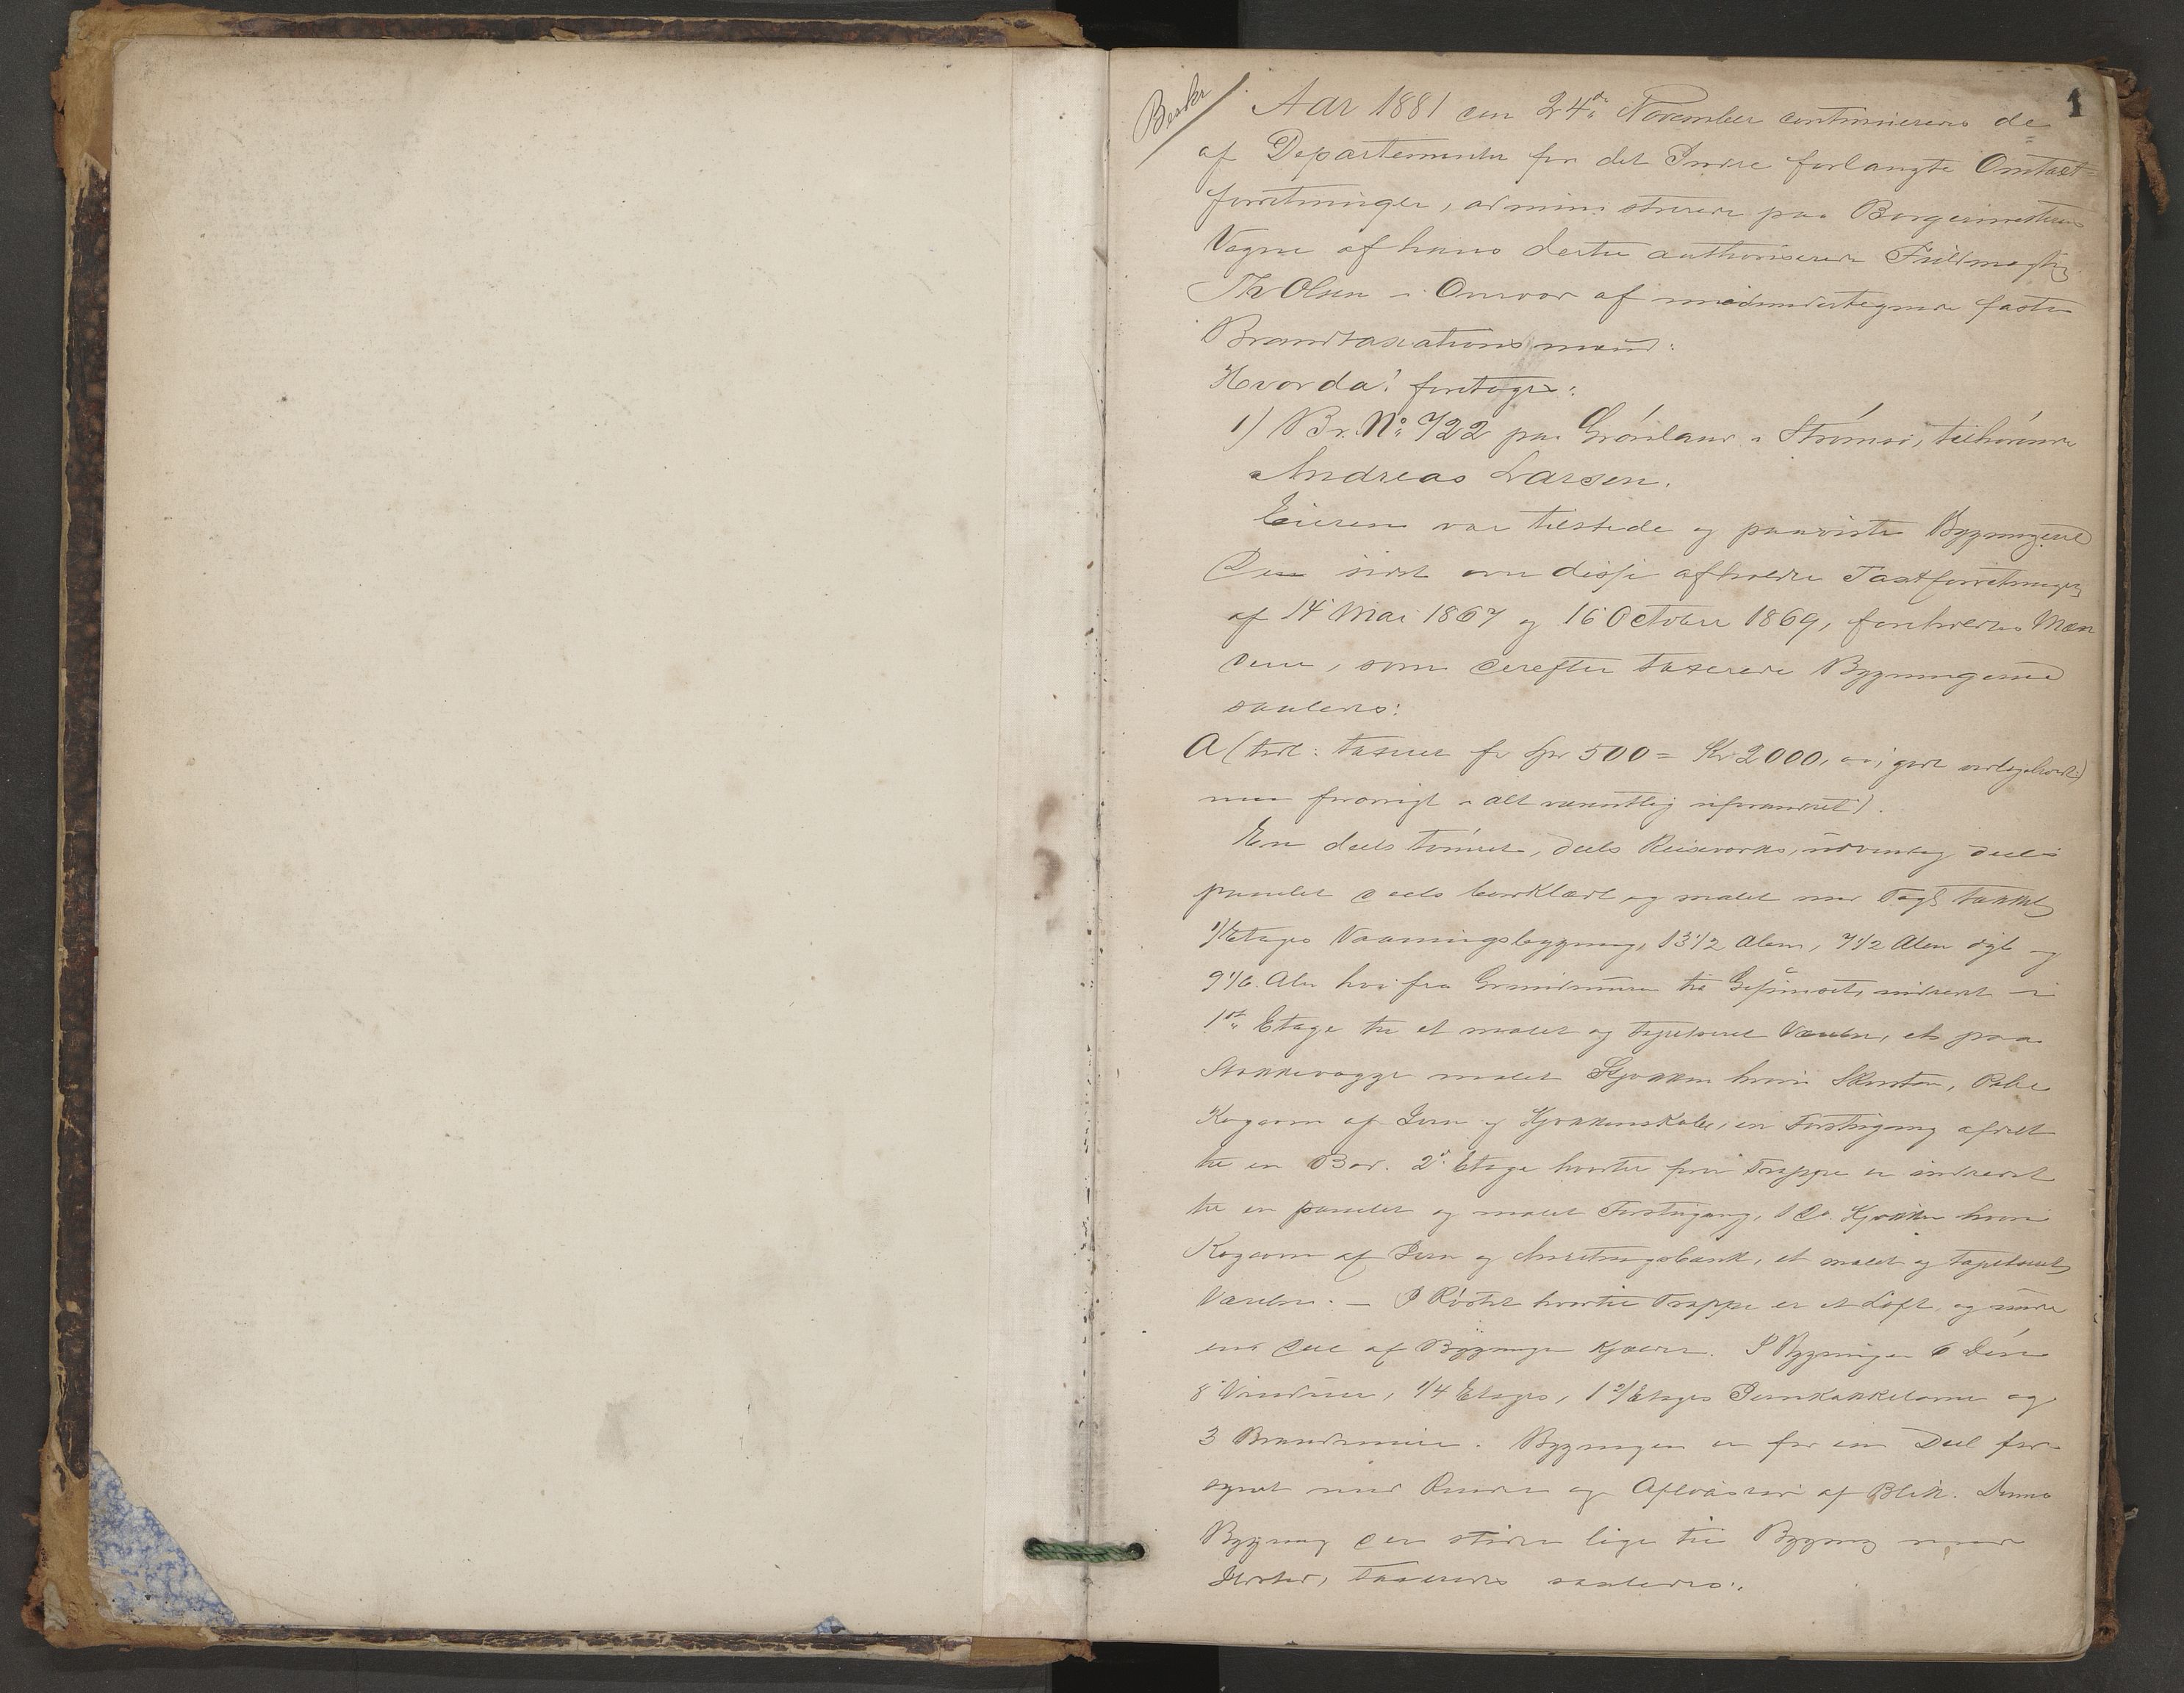 1
Beskr
Aar 1881 den 24de November continueredes de
af Departementet for det Indre forlangte Omtaxt=
forretninger, administrerede paa Borgermesterens
Vegne af hans dertil authoriserede Fuldmægtig
Th Olsen i Overvær af medundertegnede faste
Brandtaxationsmænd:
Hvorda! foretoges:
1) Br. No 722 paa Grönland i Strömsö, tilhörende
Andreas Larsen.
Eieren var tilstede og paaviste Bygningerne
De sidst over disse afholdte Taxtforretninger
af 14 Mai 1867 og 16 October 1869, foreholdtes Mæn
dene, som derefter taxerede Bygningerne
saaledes:
A (tidl: taxeret for Spd 500 = Kr 2000, godt vedligeholdt
men forövrigt i alt væsentlig uforandret).
En deels tömret, deels Reisværks, udvendig deels
panelet deels bordklædt og malet med Tagst. tækket
2 Etages Vaaningsbygning, 13 1/2 Alen, 7 1/2 Alen dyb og
9 1/6 Alen höi fra Grundmuren til Gesimset, indredt i
1ste Etage til et malet og tapetseret Værelse, et paa
Stokkevægge malet Kjökken hvori Skorsten, Pibe
Kogeovn af Jern og Kjökkenskabe, en Forstugang afdelt
til en Bod. 2den Etage hvortil fri Trappe er indredt
til en panelet og malet Forstugang, 1 Do. Kjökken hvori
Kogeovn af Jern og Anretningsbænk, et malet og tapetseret
Værelse. — I Röstet hvortil Trappe er et Loft, og under
en Deel af Bygningen Kjælder. I Bygningen 6 Döre
8 Vinduer, 1/4 Etages, 1 2/Etages Jernkakkelovne og
3 Brandmure. Bygningen er for en Deel for-
synet med Render og Aflöbsrör af Blik. Denne
Bygning der stöder lige til Bygning med
taxeredes saaledes: